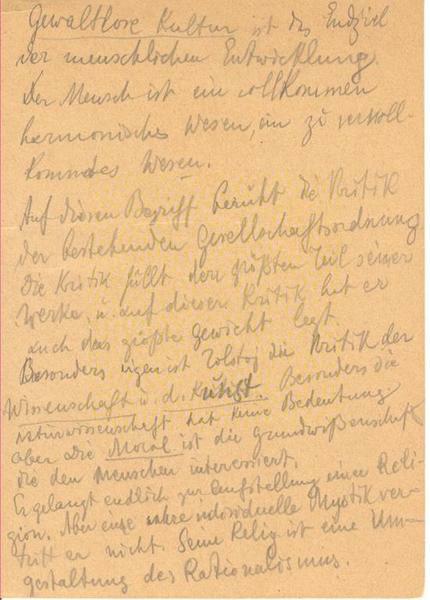 Gewaltlose Kultur ist das Endziel
der menschlichen Entwicklung.
Der Mensch ist ein vollkommen
harmonisches Wesen, ein zu vervoll-
kommdes Wesen.
Auf diesen Begriff beruht die Kritik
der bestehenden Gesellschaftsordnung
Die Kritik füllt den größten Teil seiner
Werke, u. auf dieser Kritik hat er
auch das größte Gewicht legt.
Besonders ist Tolstoj die Kritik der
Wissenschaft u. d. Kunst. Besonders die
Naturwissenschaft hat keine Bedeutung
aber die Moral ist die Grundwißenschaft
die den Menschen interessiert.
Er gelangt endlich zur Aufstellung einer Reli-
gion. Aber eine individuelle Mystik ver-
tritt er nicht. Seine Relig. ist eine Um-
gestaltung des Rationalismus.